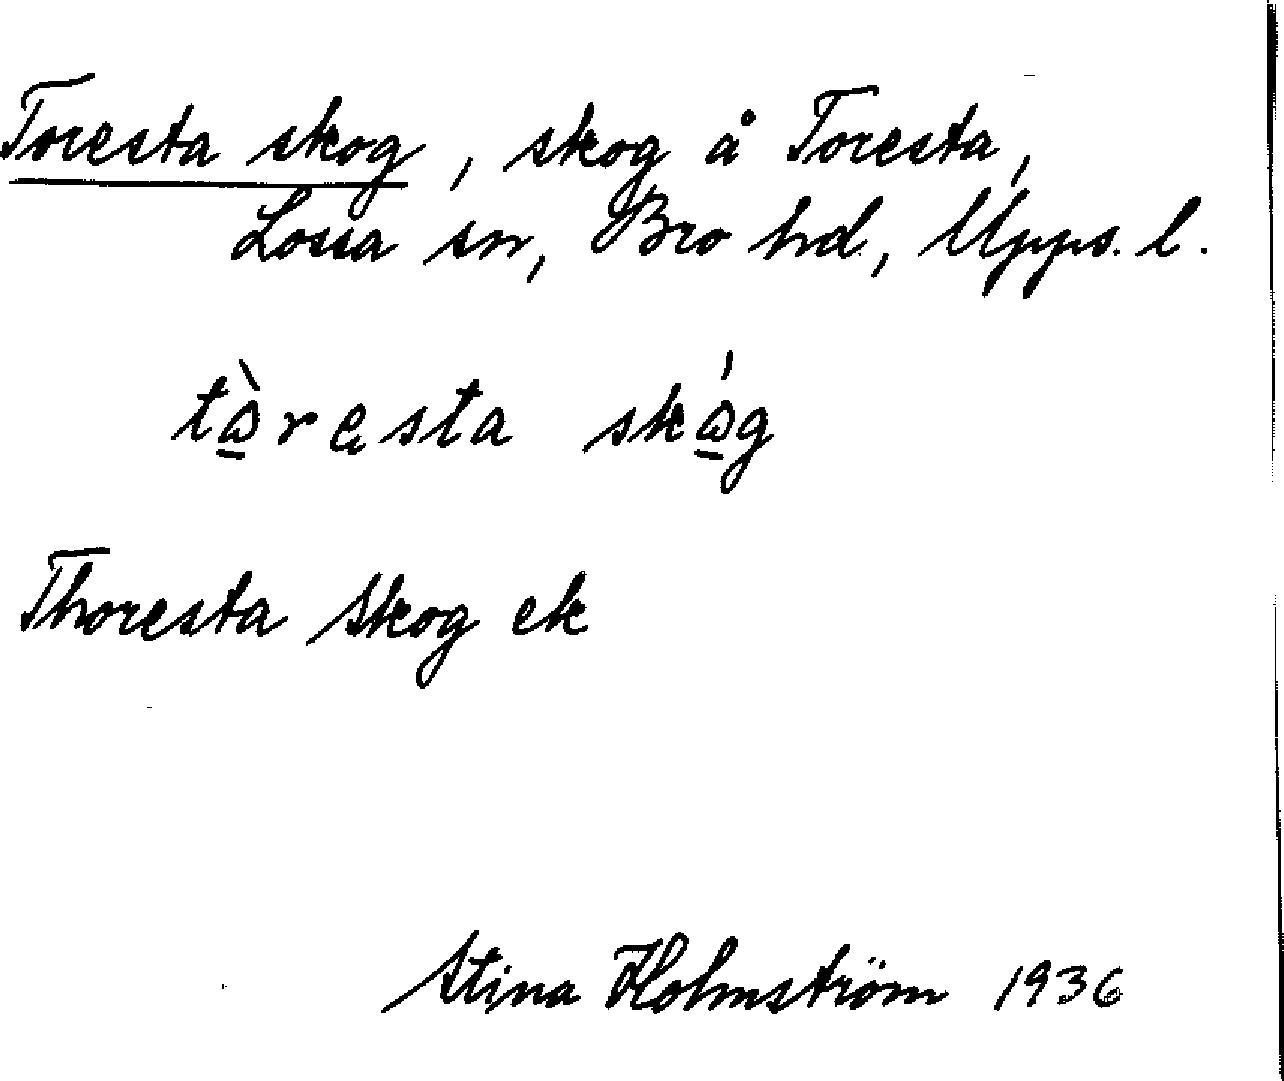 Toresta skog, skog å Toresta,
Lossa sn, Bro hd, Upps. l.
tò̠ręsta skó̠g
Thoresta Skog ek
Stina Holmström 1936